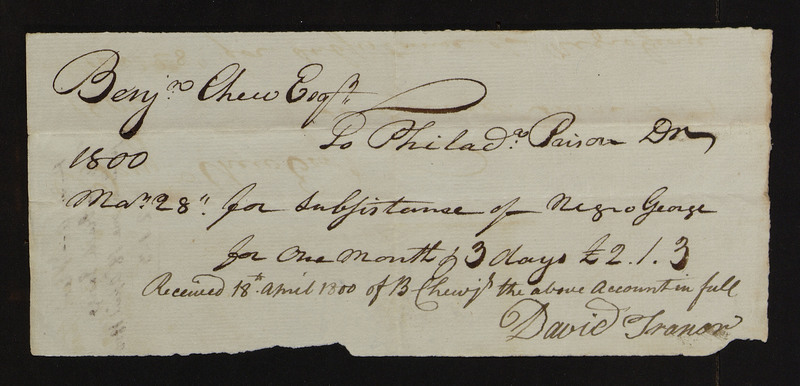 Benjn Chew Esqr
To Philada Prison Dr
1800
Mar. 28" for Subsistance of Negro George
for one Month & 3 days £2.1.3
Received 18th April 1800 of B Chew jr the above Account in full
David Tranor